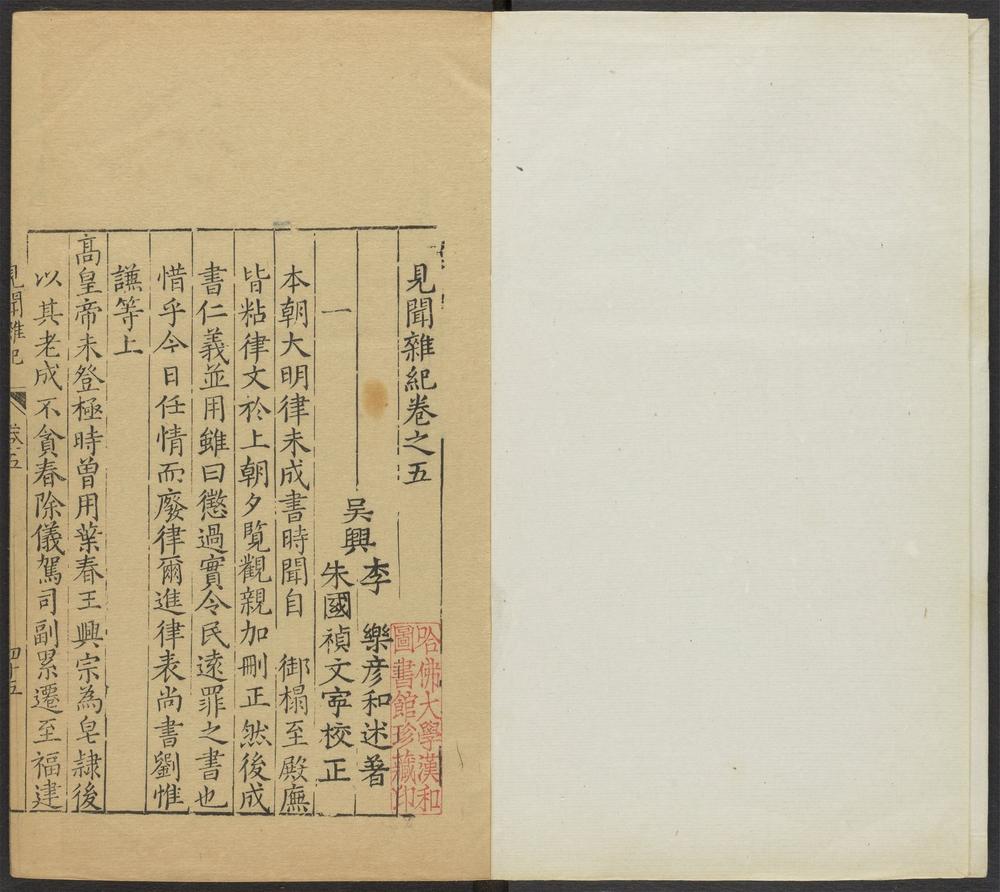 見聞雜紀卷之五
吳興
李 樂彦和述著
朱國禎文寧校正
一
本朝大明律未成書時聞自 御榻至殿廡
皆粘律文於上朝夕覧觀親加刪正然後成
書仁義並用雖曰懲過實令民遠罪之書也
惜乎今日任情而廢律爾進律表尚書劉惟
謙等上
高皇帝未登極時曽用葉春王興宗為皂隷後
以其老成不貪春除儀鸞司副累遷至福建
見聞雜紀
卷五
四十五
哈佛大學漢和
圖書館珍藏印